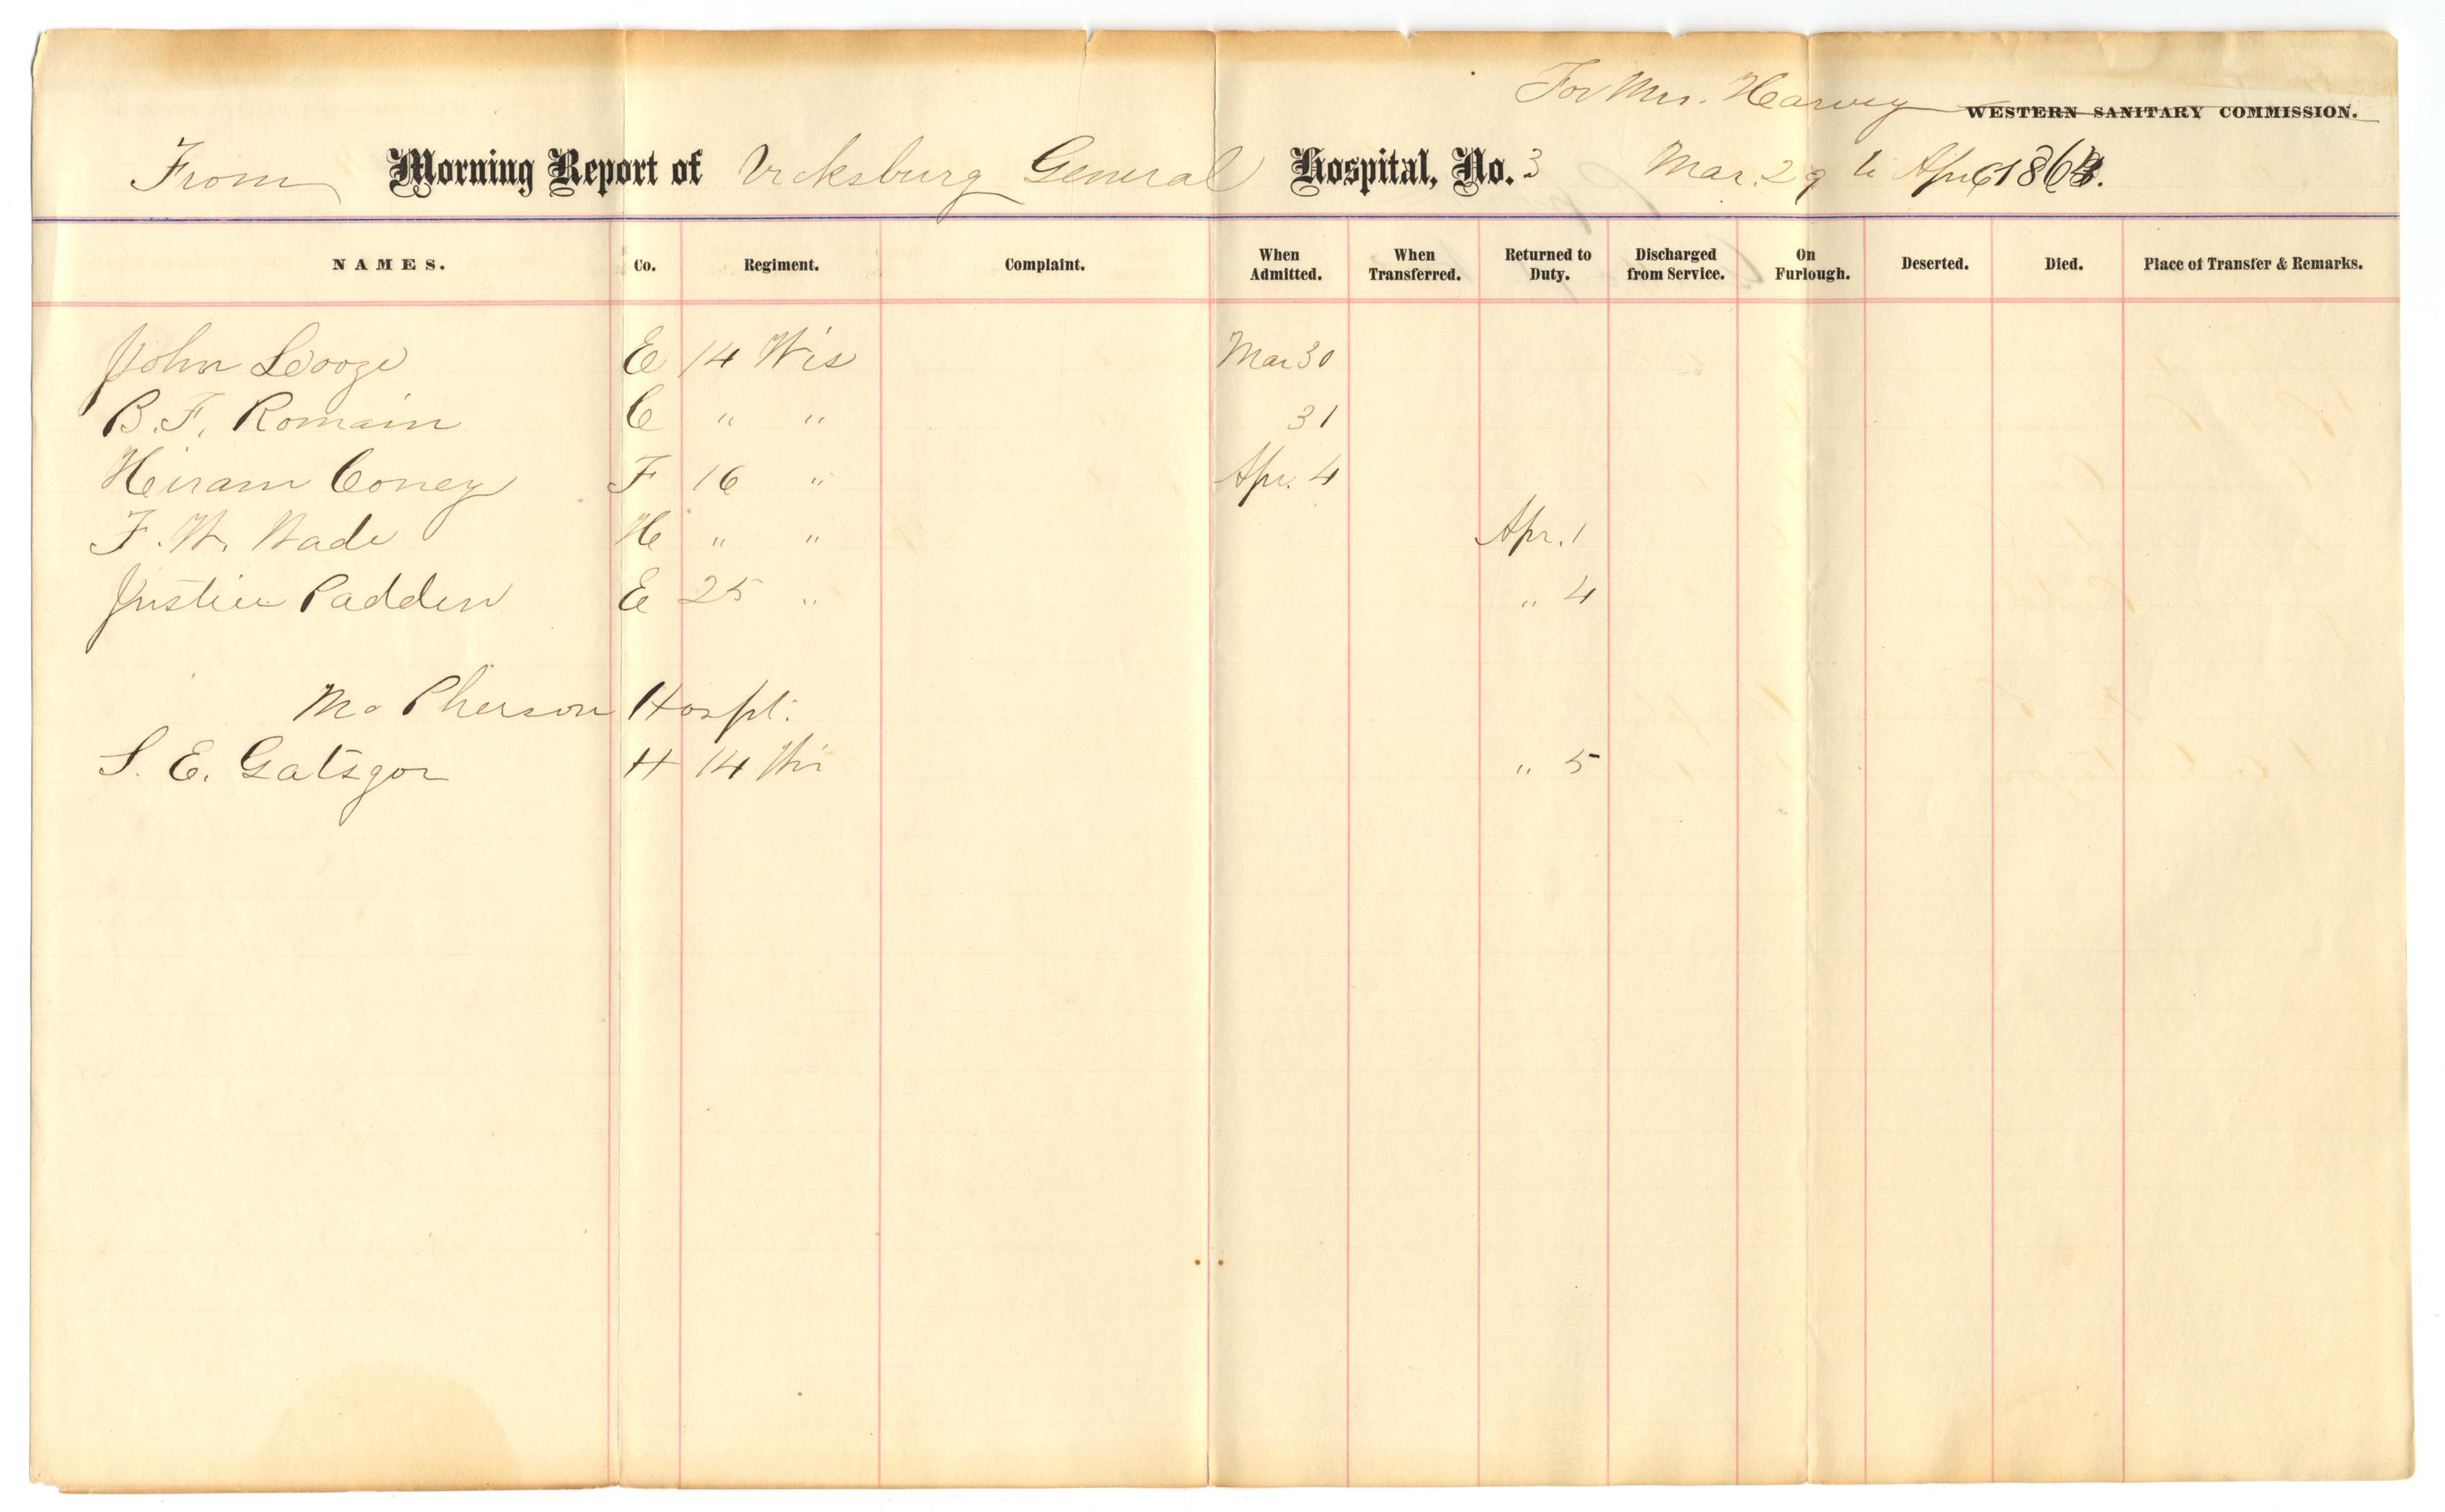 For Mrs. Harvey WESTERN SANITARY COMMISSION.
From Morning Report of Vicksburg General Hospital, No. 3 Mar. 29 to Apr 6 1864.
NAMES. Co. Regiment. Complaint. When Admitted. When Transferred. Returned to Duty. Discharged from Service. On Furlough. Deserted. Died. Place of Transfer & Remarks.
John Looze E 14 Wis Mar 30
B. F. Romain C " " 31
Hiram Coney F 16 " Apr. 4
F. W. Wade H " " Apr. 1
Justice Padden E 25 " " 4
McPherson Hospt.
S. E. Gatsgor H 14 Wis " 5